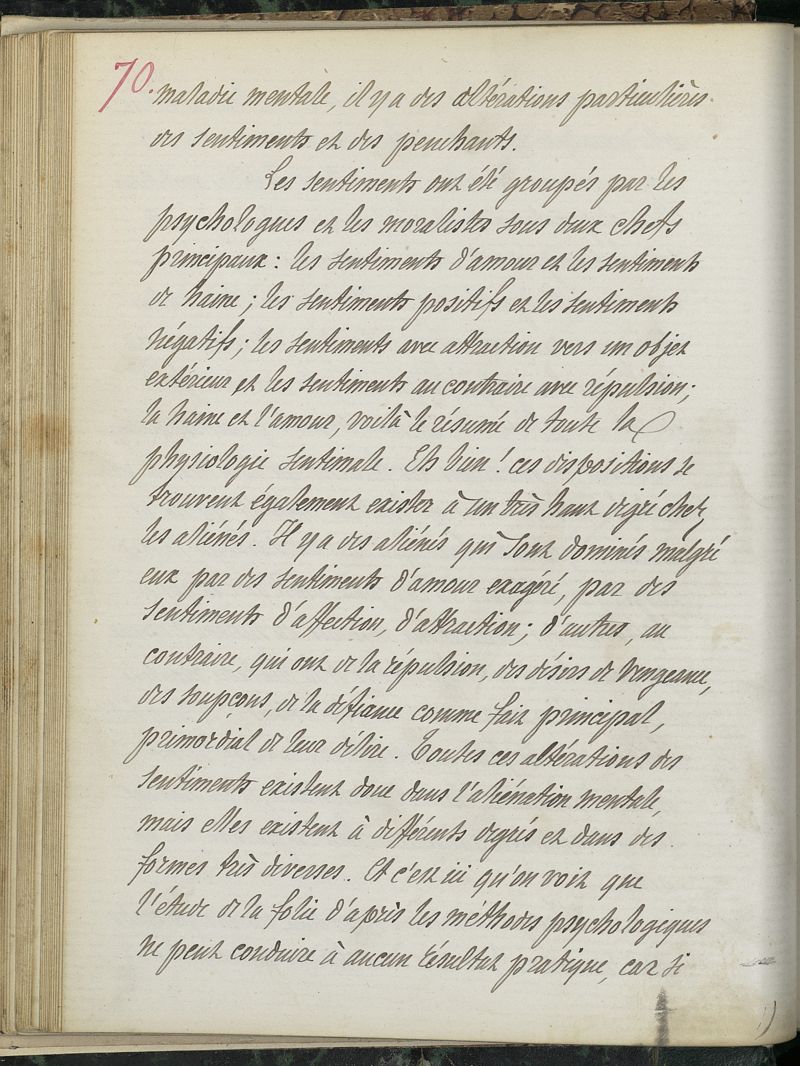 70.
maladie mentale, il y a des altérations particulières
des sentiments et des penchants.
Les sentiments ont été groupés par les
psychologues et les moralistes sous deux chefs
principaux : les sentiments d'amour et les sentiments
de haine ; les sentiments positifs et les sentiments
négatifs ; les sentiments avec attraction vers un objet
extérieur et les sentiments au contraire avec répulsion ;
la haine et l'amour, voilà le résumé de toute la
physiologie sentimale. Eh bien ! ces dispositions se
trouvent également exister à un très haut degré chez
les aliénés. Il y a des aliénés qui sont dominés malgré
eux par des sentiments d'amour exagéré, par des
sentiments d'affection, d'attraction ; d'autres, au
contraire, qui ont de la répulsion, des désirs de vengeance,
des soupçons, de la défiance comme fait principal,
primordial de leur délire. Toutes ces altérations des
sentiments existent donc dans l'aliénation mentale,
mais elles existent à différents degrés et dans des
formes très diverses. Et c'est ici qu'on voit que
l'étude de la folie d'après les méthodes psychologiques
ne peut conduire à aucun résultat pratique, car si